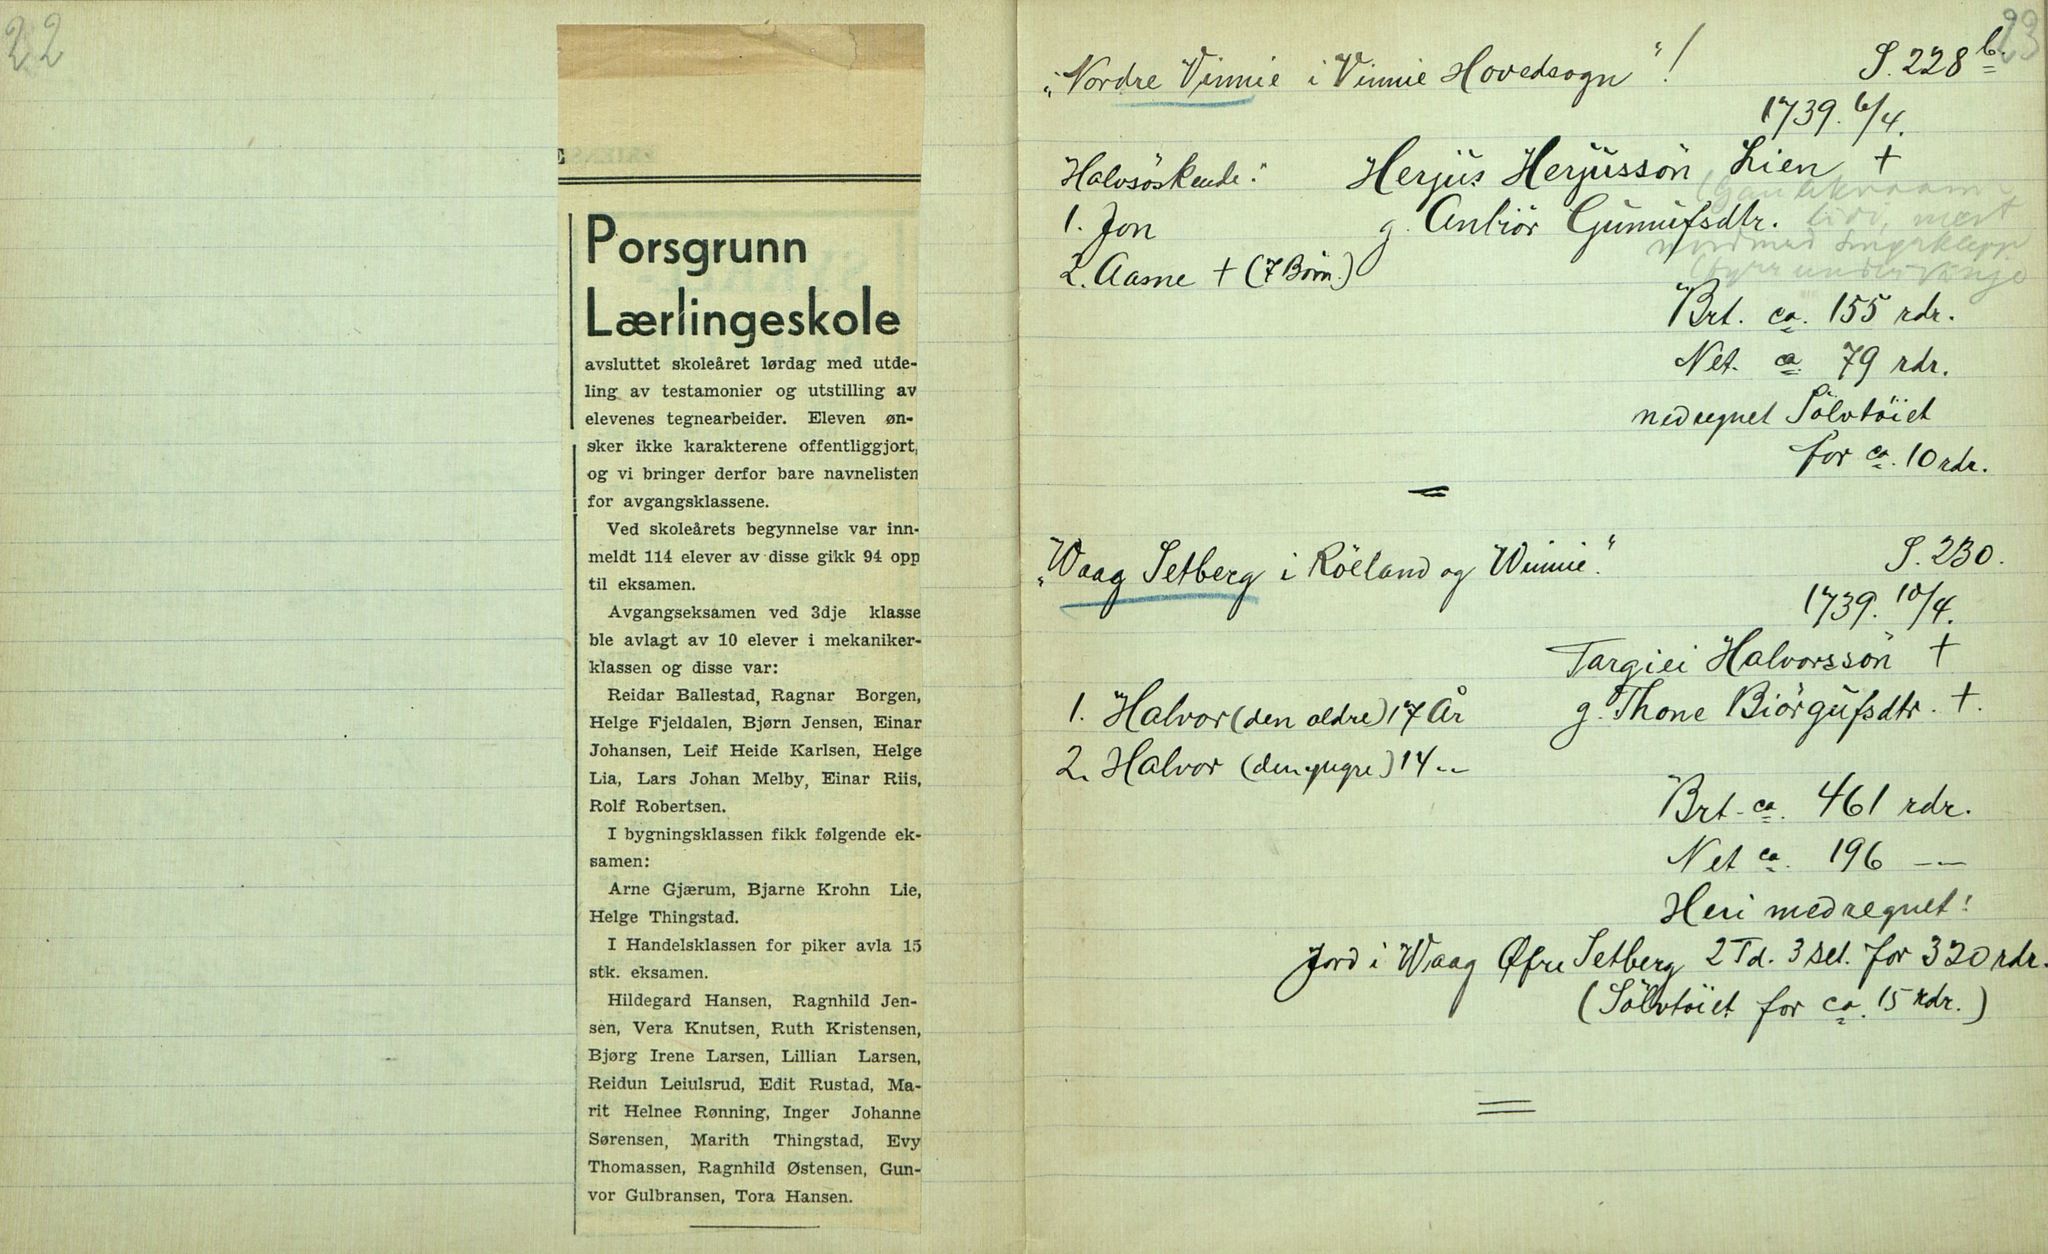 22
Porsgrunn
Lærlingeskole
avsluttet skoleåret lørdag med utde-
ling av testamonier og utstilling av
elevenes tegnearbeider. Eleven øn-
sker ikke karakterene offentliggjort,
og vi bringer derfor bare navnelisten
for avgangsklassene.
Ved skoleårets begynnelse var inn-
meldt 114 elever av disse gikk 94 opp
til eksamen.
Avgangseksamen ved 3dje klasse
ble avlagt av 10 elever i mekaniker-
klassen og disse var:
Reidar Ballestad, Ragnar Borgen,
Helge Fjeldalen, Bjørn Jensen, Einar
Johansen, Leif Heide Karlsen, Helge
Lia, Lars Johan Melby, Einar Riis,
Rolf Robertsen.
I bygningsklassen fikk følgende ek-
samen:
Arne Gjærum, Bjarne Krohn Lie,
Helge Thingstad.
I Handelsklassen for piker avla 15
stk. eksamen.
Hildegard Hansen, Ragnhild Jen-
sen, Vera Knutsen, Ruth Kristensen,
Bjørg Irene Larsen, Lillian Larsen,
Reidun Leiulsrud, Edit Rustad, Ma-
rit Helnee Rønning, Inger Johanne
Sørensen, Marith Thingstad, Evy
Thomassen, Ragnhild Østensen, Gun-
vor Gulbransen, Tora Hansen.
23
„Nordre Vinnie i Vinnie Hovedsogn"! S. 228 b.
1739. 6/4.
Halvsöskende: Herjus Herjussön Lien +
1. Jon g. Anbiör Gunnufsdtr.
2. Aasne + (7 Börn.)
Brt. ca. 155 rdr.
Net. ca. 79 rdr.
medregnet Sölvtöiet
for ca. 10 rdr.
„Waag Setberg i Röeland og Winnie". S. 230.
1739. 10/4.
Targiei Halvorssön +
1. Halvor (den ældre) 17 År g. Thone Biörgufsdtr. +.
2. Halvor (den yngre) 14 --
Brt. ca. 461 rdr.
Net ca. 196 --
Heri medregnet:
Jord i Waag Øfre Setberg 2 Td. 3 set. for 320 rdr.
(Sölvtöiet for ca. 15 rdr.)